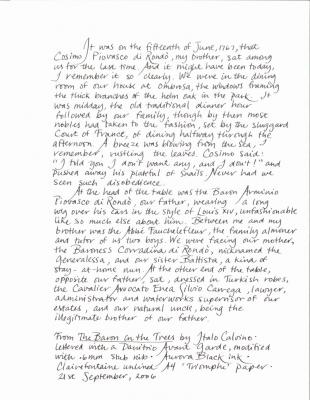 It was on the fifteenth of June, 1767, that
Cosimo Piovasco di Rondò, my brother, sat among
us for the last time. And it might have been today,
I remember it so clearly. We were in the dining
room of our house at Ombrosa, the windows framing
the thick branches of the holm oak in the park. It
was midday, the old traditional dinner hour
followed by our family, though by then most
nobles had taken to the fashion, set by the sluggard
Court of France, of dining halfway through the
afternoon. A breeze was blowing from the sea, I
remember, rustling the leaves. Cosimo said:
"I told you I don't want any, and I don't!" and
pushed away his plateful of snails. Never had we
seen such disobedience.
At the head of the table was the Baron Arminio
Piovasco di Rondò, our father, wearing a long
wig over his ears in the style of Louis XIV, unfashionable
like so much else about him. Between me and my
brother was the Abbé Fauchelefleur, the family almoner
and tutor of us two boys. We were facing our mother,
the Baroness Corradina di Rondò, nicknamed the
Generalessa, and our sister Battista, a kind of
stay-at-home nun. At the other end of the table,
opposite our father, sat, dressed in Turkish robes,
the Cavalier Avvocato Enea Silvio Carrega, lawyer,
administrator and waterworks supervisor of our
estates, and our natural uncle, being the
illegitimate brother of our father.
From The Baron in the Trees by Italo Calvino.
Lettered with a Danitrio Avant Garde, modified
with .6mm stub nib. Aurora Black ink.
Clairefontaine unlined A4 'Triomphe' paper.
21st September, 2006